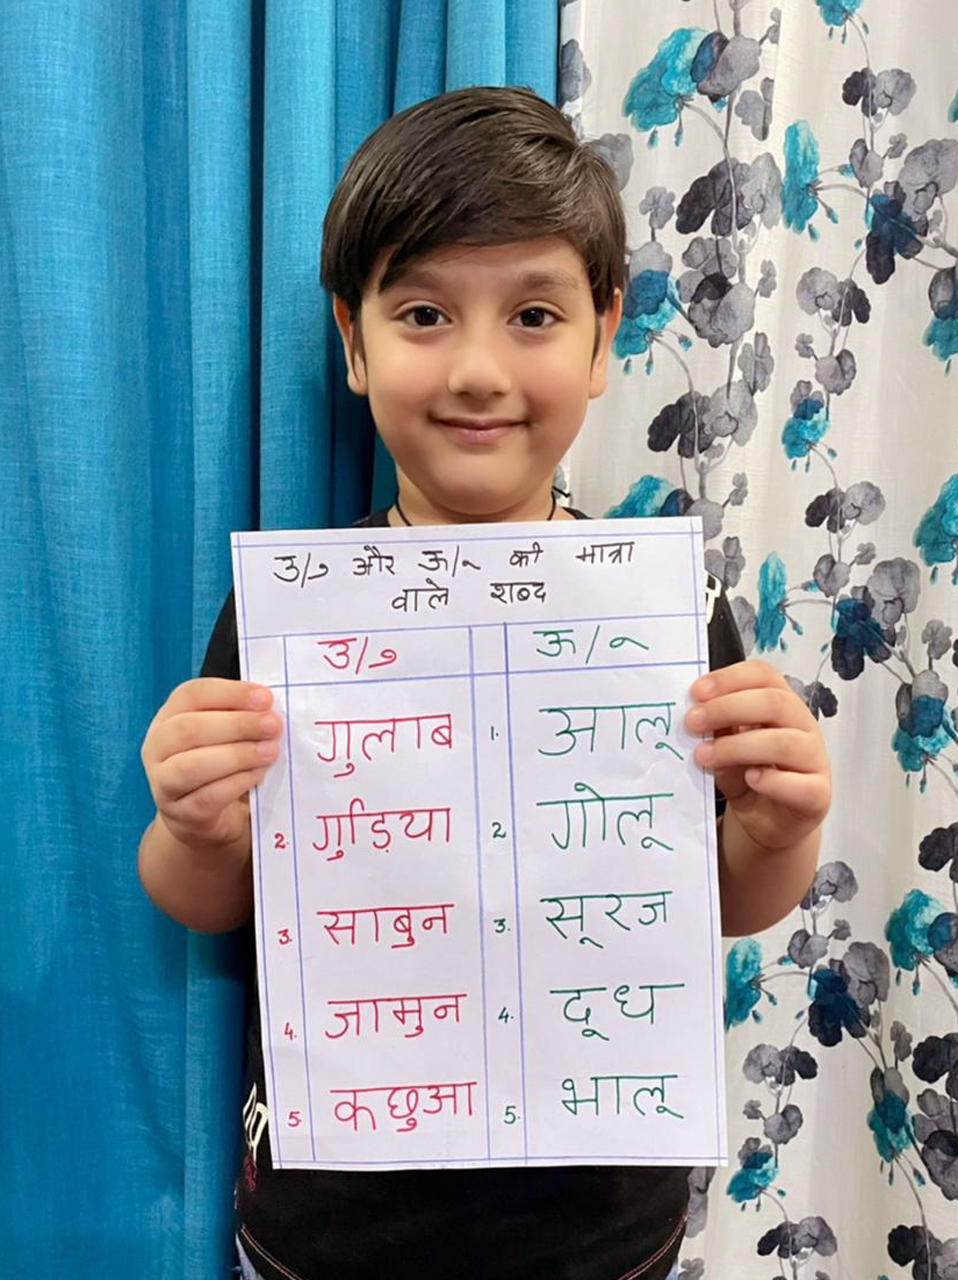 उ/ु और ऊ/ू की मात्रा
वाले शब्द
उ/ु ऊ/ू
गुलाब 1. आलू
2. गुड़िया 2 गोलू
3. साबुन 3. सूरज
4. जामुन 4. दूध
5. कछुआ 5. भालू